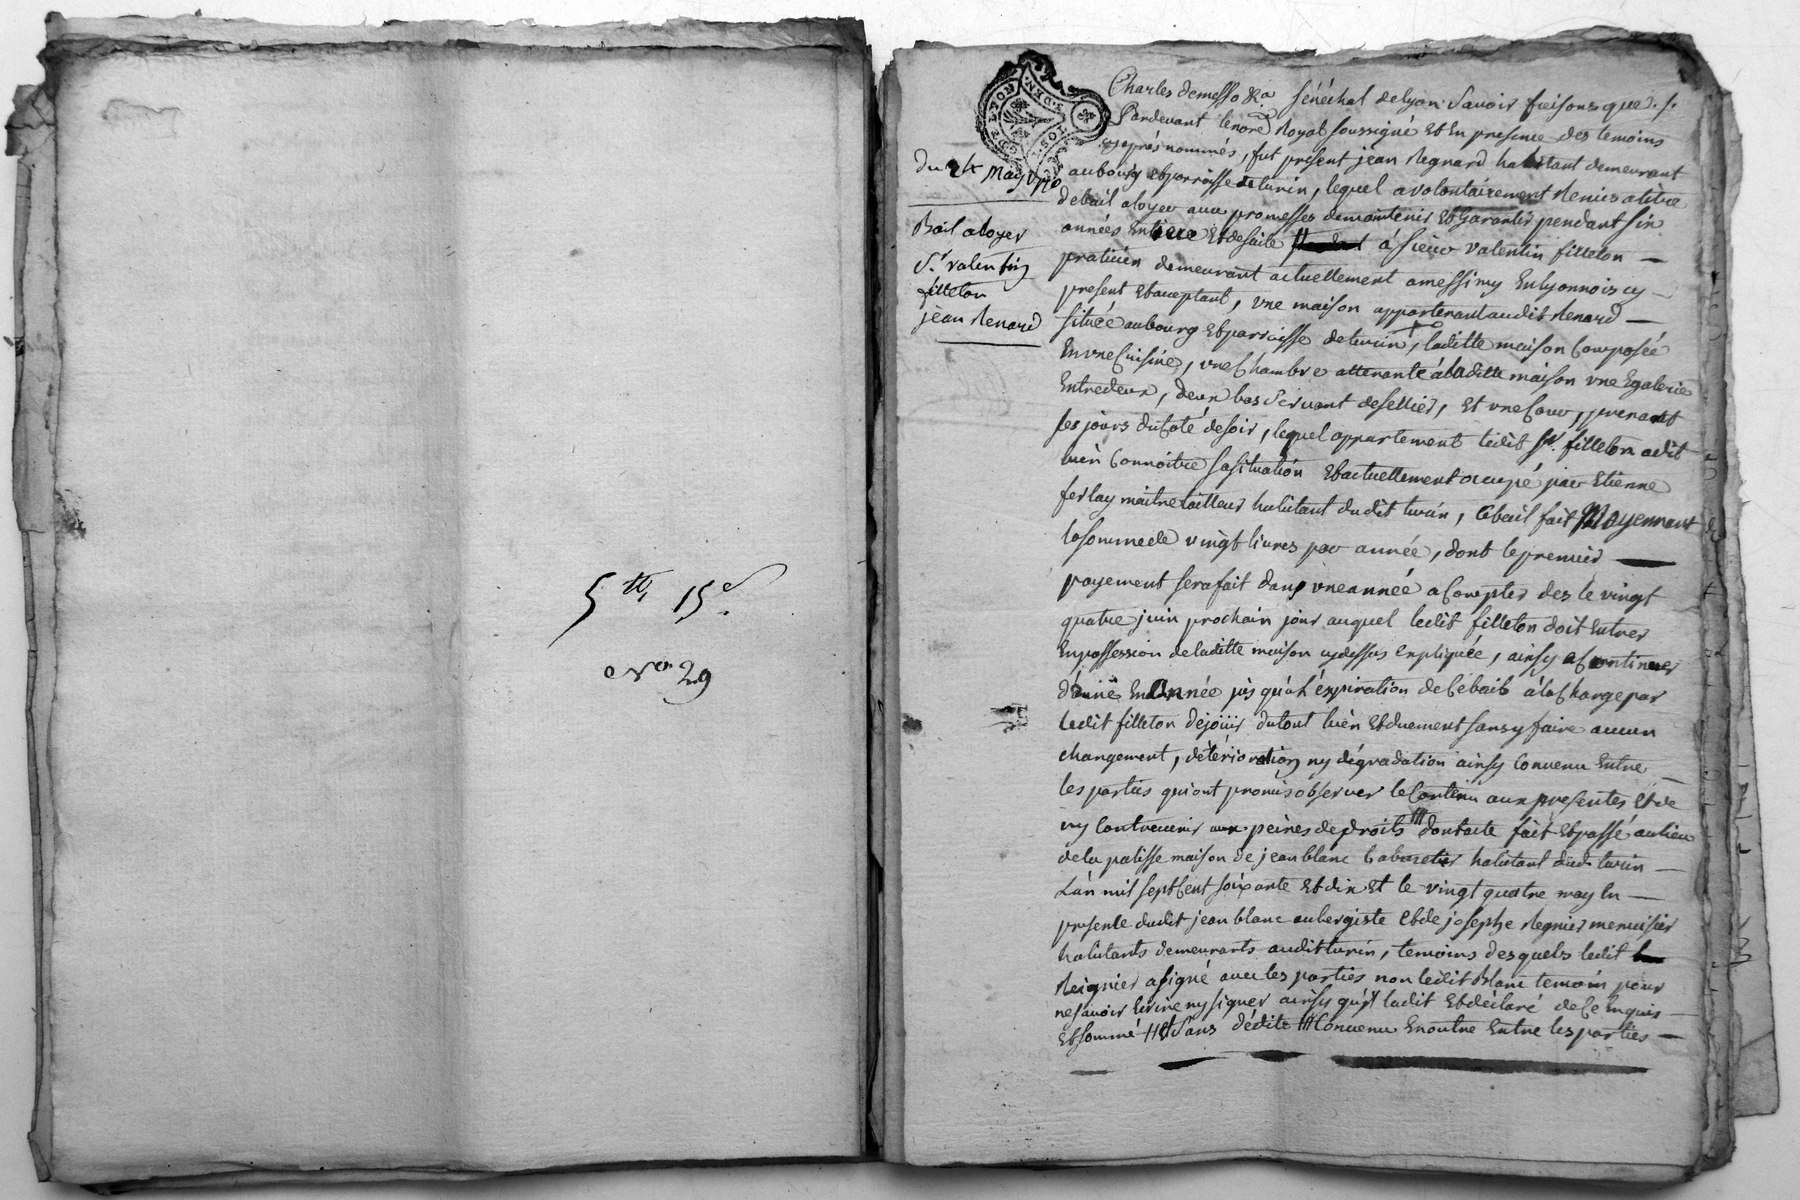 5 tt, 15 s.
N.ro 29
GEN. DE LYON
2. SOLS. 8. DEN.
du 24 may 1770
Bail a loyer
S.r valentin
filleton
jean Renard
Charles demesso &a sénéchal delyon Savoir faisons que
Pardevant lenore Royal soussigné Et En presence des temoins
cy aprés nommés, fut present jean Regnard habitant demeurant
au bourg et parroisse de turin, lequel a volontairement Remis atitre
debail aloyer avec promesses demaintenir Et Garantir pendant six
années Entiere Et desuite à sieur valentin filleton
praticien demeurant actuellement a messimy En lyonnois cy
present Et acceptant, vne maison appartenant audit Renard
située aubourg Et parroisse de turin, laditte maison Composée
En vne Cuisine, vne Chambre attenante à laditte maison vne Egalerie
Entredeux, deux bas Servant desellier, Et vne Cour, prenant
ses jours du Coté de soir, lequel appartement ledit S.r filleton adit
bien Connoitre sa situation Et actuellement occupé par Etienne
ferlay maitre tailleur habitant dudit turin, Cebail fait Moyennant
la somme de vingt livres par année, dont le premier
payement sera fait dans vne année a Compter des le vingt
quatre juin prochain jour auquel ledit filleton doit Entrer
En possession de laditte maison cy dessus Expliquée, ainsy a Continuer
d'année En Année jusqu'à l'éxpiration deCebail à la Charge par
ledit filleton de joüir dutout bien Et duement sans y faire aucun
changement, détérioration ny dégradation ainsy Convenu Entre
les parties qui ont promis observer le Contenu aux presentes Et de
ny Contrevenir aux peines de droits dont acte fait Et passé au lieu
de la palisse maison de jean blanc Cabaretier habitant dud. turin
L'an mil sept Cent soixante Et dix Et le vingt quatre may En
presence dudit jean blanc aubergiste Et de josephe Regnier menuisier
habitants demeurants audit turin, temoins desquels ledit
Reignier a signé avec les parties non ledit Blanc temoin pour
ne savoir Ecrire ny signer ainsy qu'il la dit Et déclaré de Ce Enquis
Et sommé Sans dédite Convenu En outre Entre les parties